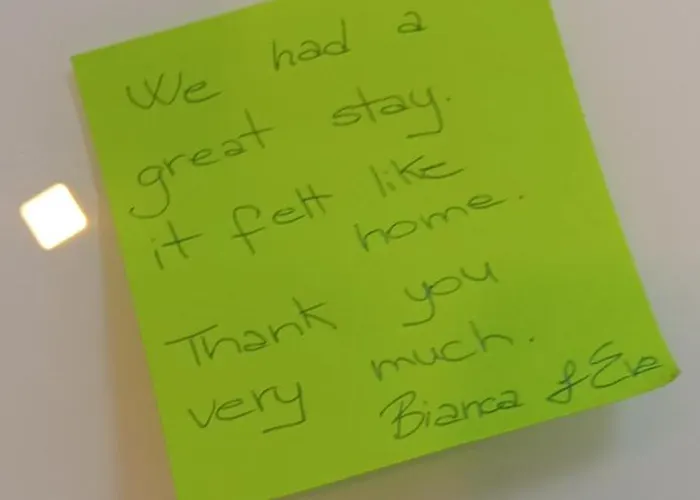 We had a
great stay.
it felt like
home.
Thank you
very much.
Bianca & Eva